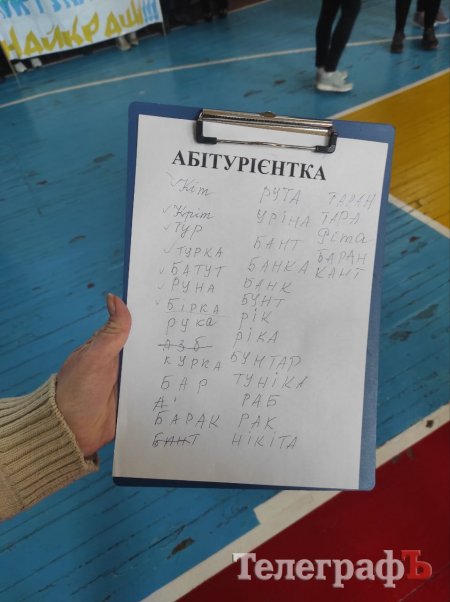 НАЙКРАЩІ!!!
АБІТУРІЄНТКА
✓ Кіт
✓ Кріт
✓ ТУР
✓ ТУРКА
✓ БАТУТ
✓ РУНА
✓ БІРКА
РУКа
АЗБ
КУРКА
БАР
БАРАК
БАНТ
РУТА
УРІНА
БАНТ
БАНКА
БАНК
БУНТ
РІК
РІКА
БУНТАР
ТУНІКА
РАБ
РАК
НІКІТА
ТАРАН
ТАРА
Фіта
БАРАН
КАНТ
ТелеграфЪ